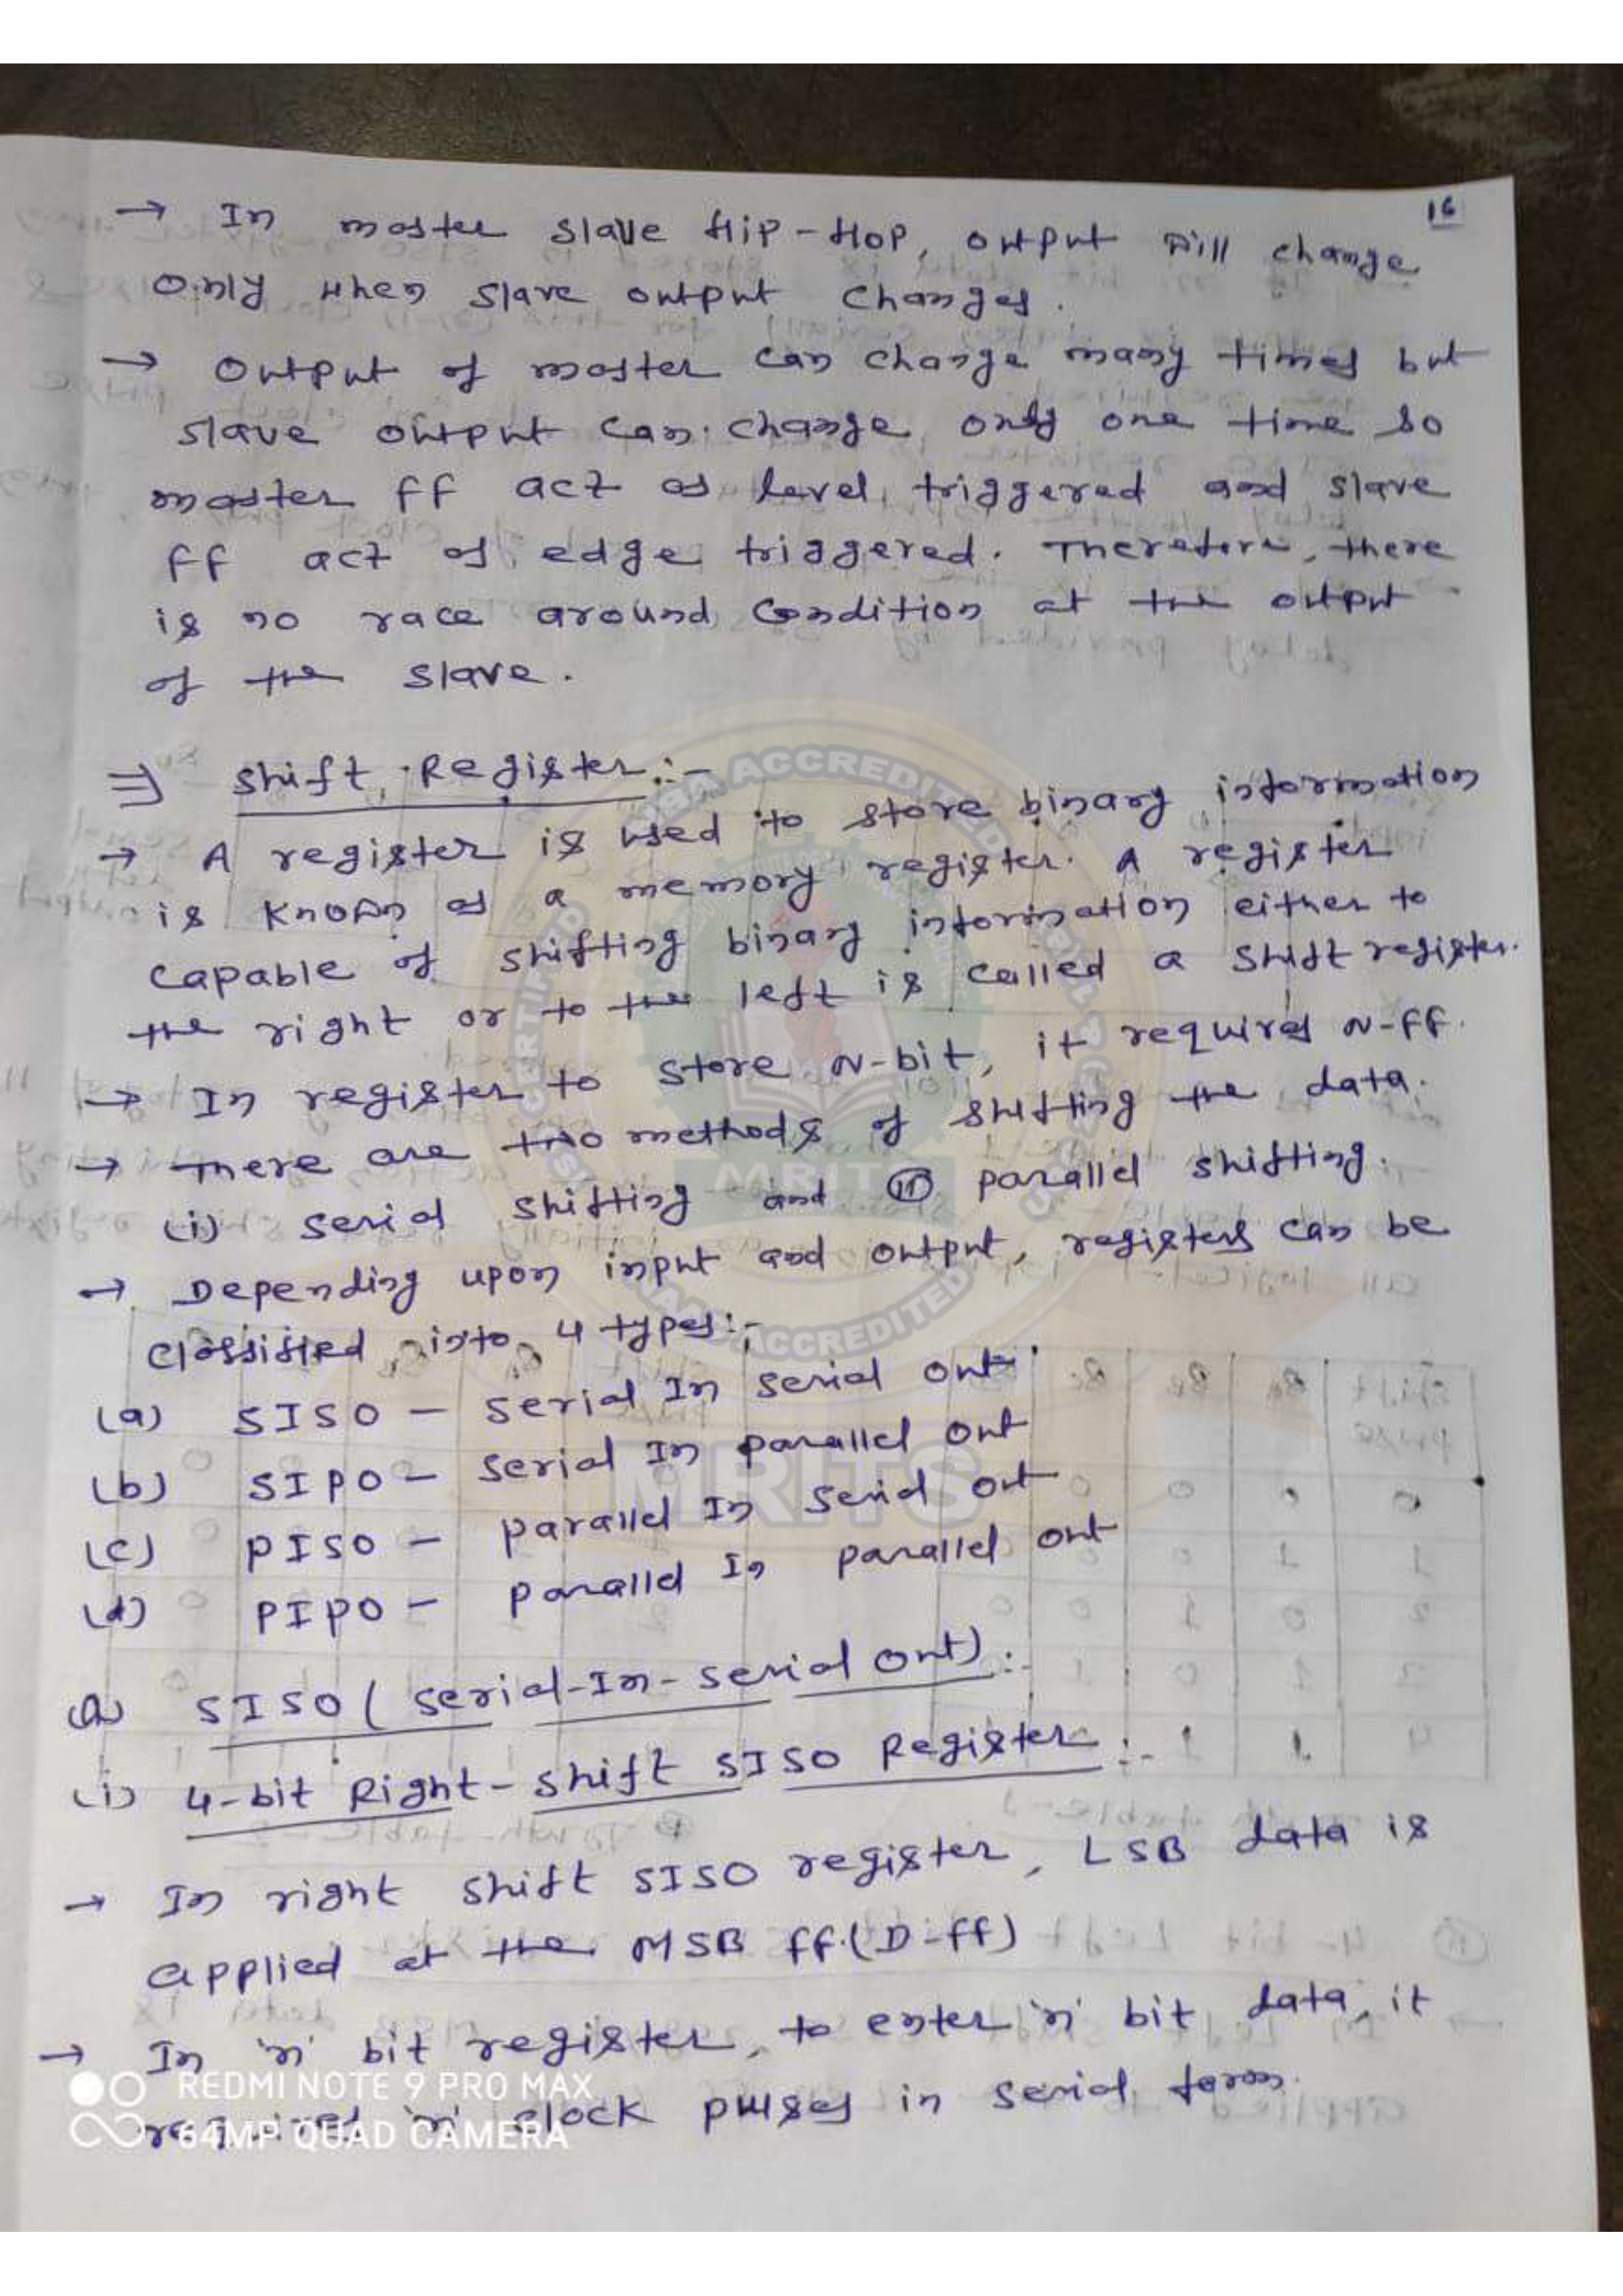 16
→ In master slave flip-flop, output will change
only when slave output changes.
→ Output of master can change many times but
slave output can change only one time so
master ff act as level triggered and slave
ff act as edge triggered. Therefore, there
is no race around condition at the output
of the slave.
⇒ Shift Register:-
→ A register is used to store binary information
is known as a memory register. A register
capable of shifting binary information either to
the right or to the left is called a shift register.
→ In register to store N-bit, it requires N-ff.
→ There are two methods of shifting the data.
(i) serial shifting and (ii) parallel shifting.
→ Depending upon input and output, registers can be
classified into 4 types:-
(a) SISO - Serial In serial out
(b) SIPO - Serial In parallel out
(c) PISO - parallel In serial out
(d) PIPO - parallel In parallel out
(a) SISO (serial-In-serial out):-
(i) 4-bit Right-shift SISO Register:-
→ In right shift SISO register, LSB data is
applied at the MSB ff.(D-ff)
→ In 'n' bit register, to enter 'n' bit data, it
required 'n' clock pulses in serial form.
REDMI NOTE 9 PRO MAX
64MP QUAD CAMERA
NBA ACCREDITED
MRITS
ACCREDITED
MRITS